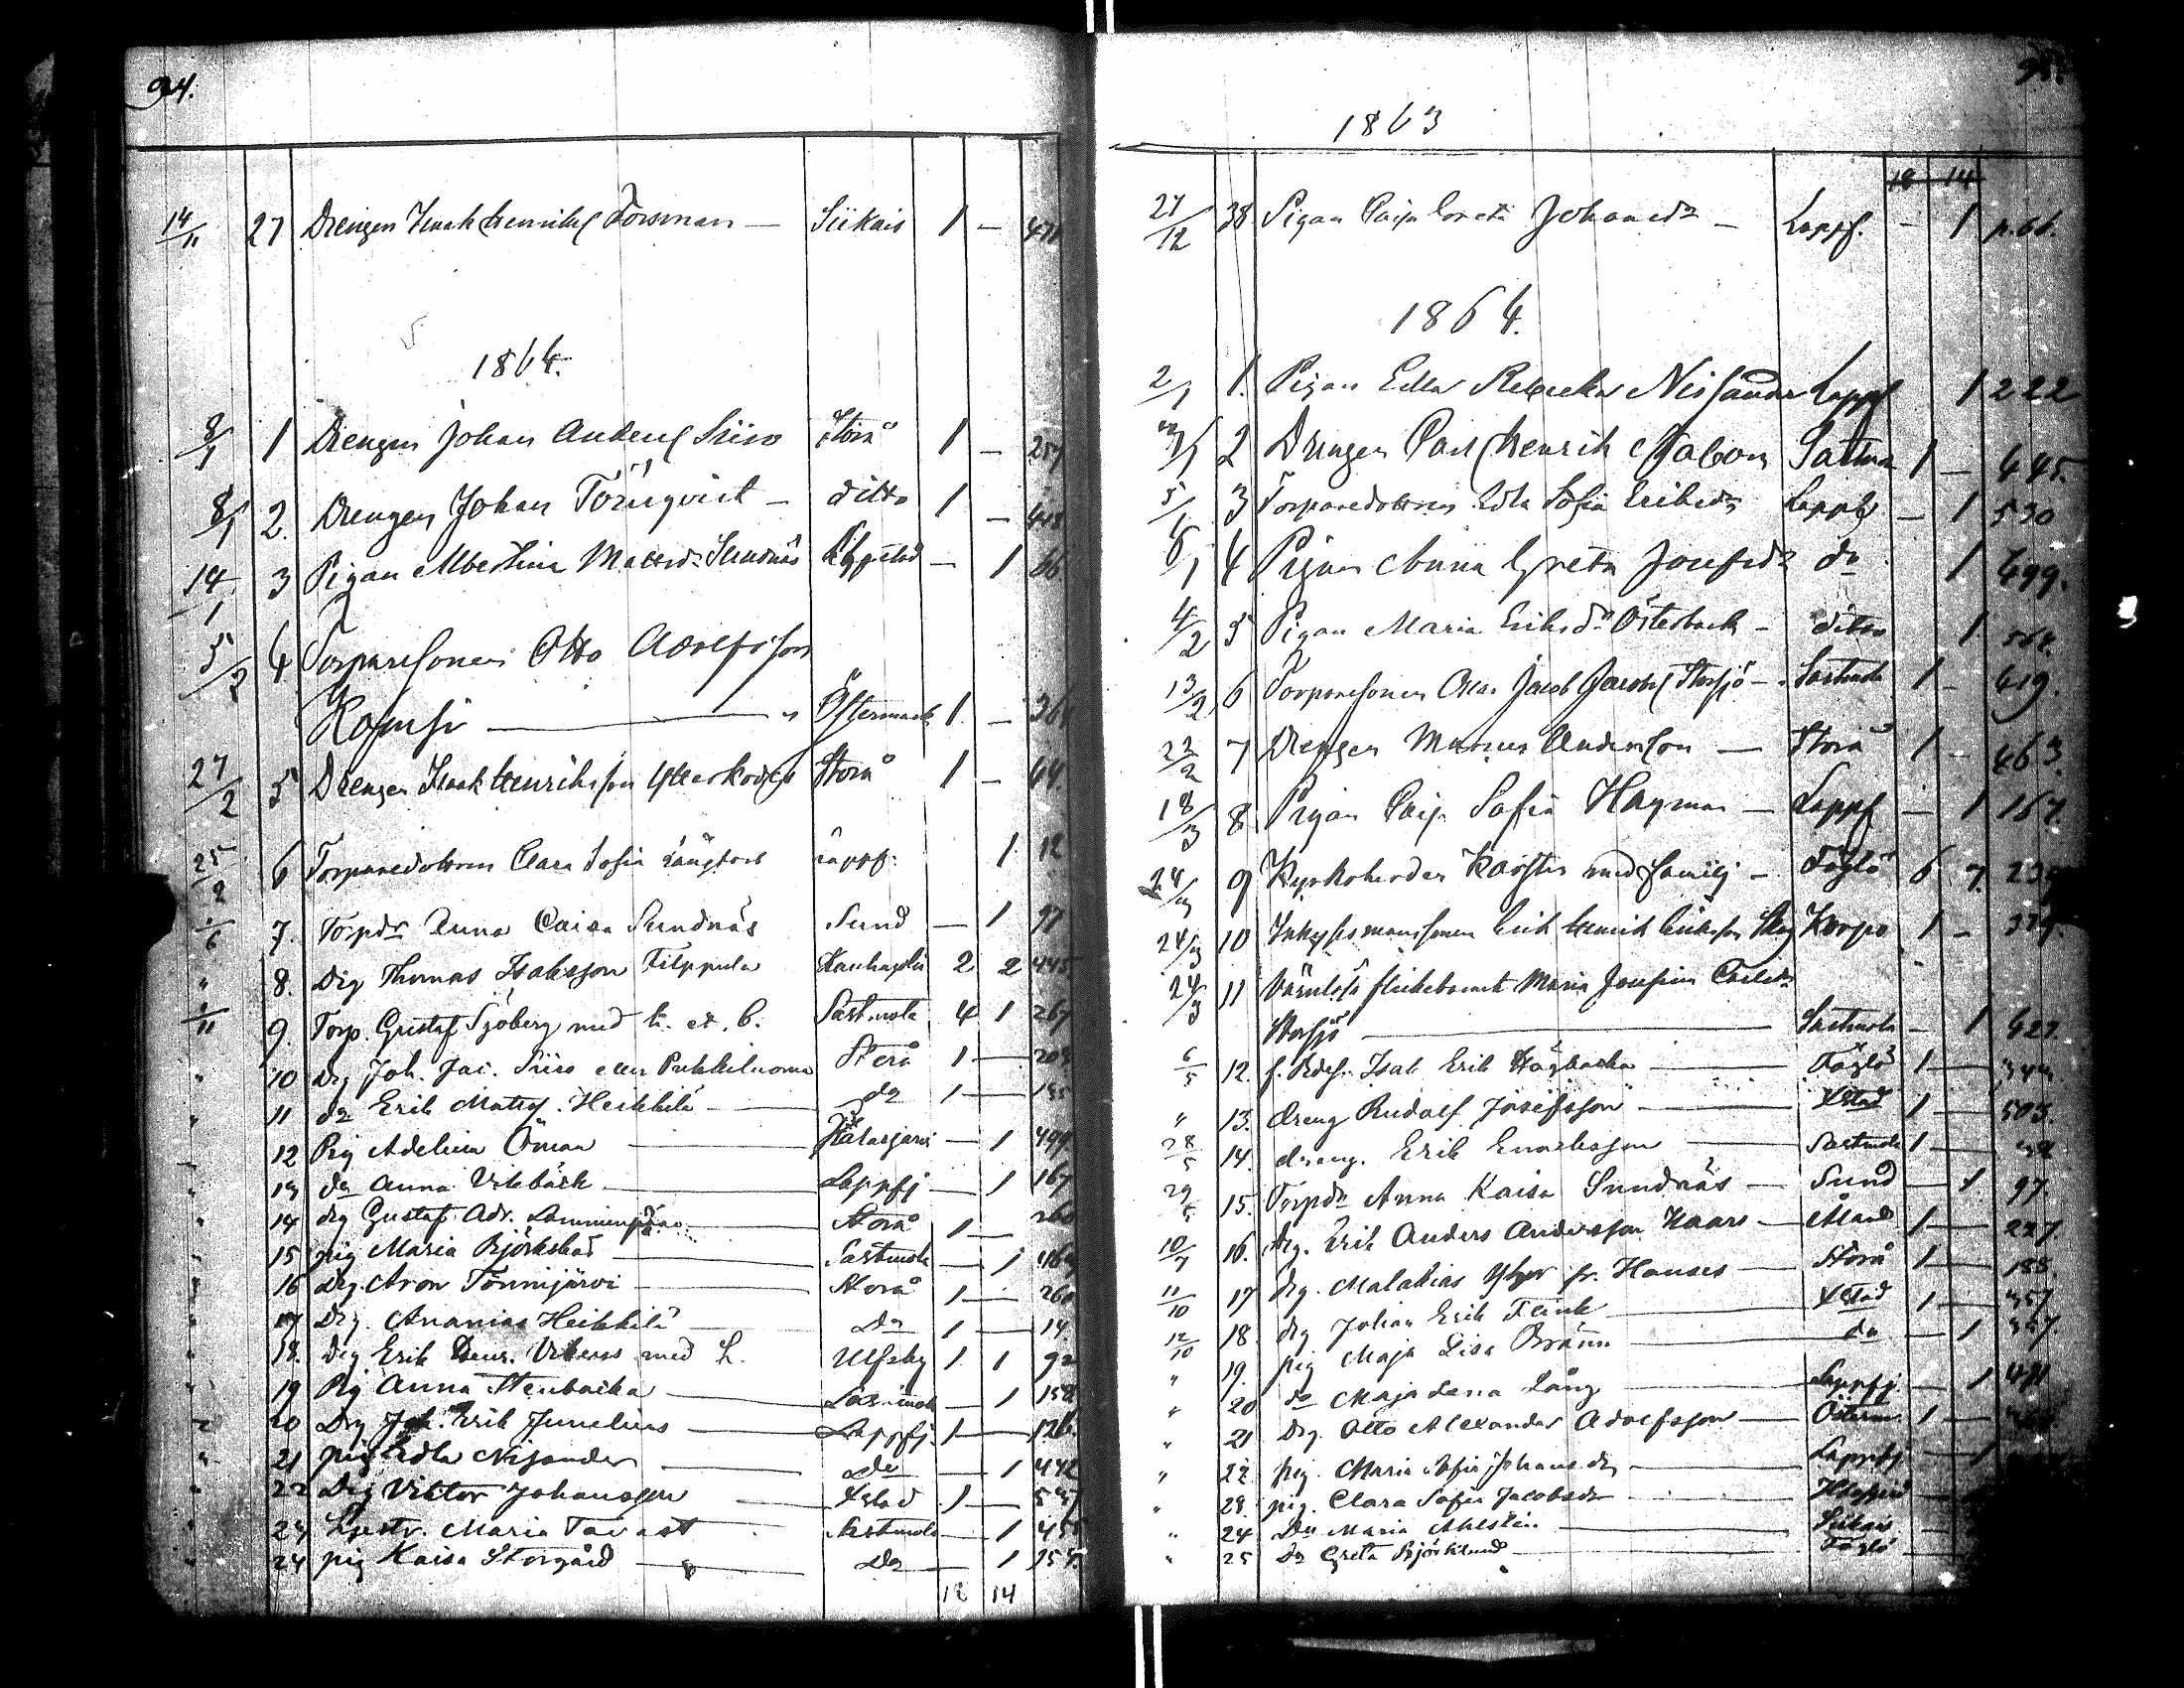 94.
14/11 27 Drengen Isaak Henrikss Forsman — Siikais 1 — 471
1864.
8/1 1 Drengen Johan Anderss Siiro Storå 1 — 257
8/1 2. Drengen Johan Törnqvist — ditto 1 — 448
14/1 3 Pigan Albertina Mattsdr Sundnäs — 1 66
5/2 4 Torparesonen Otto Adolfsson
— Östermark 1 — 36
27/2 5 Drengen Isaak Henriksson Storå 1 — 64.
25/2 6 Torparedottren Clara Sofia Långfors Lappf. 1 12
1/6 7. Torpdr Anna Caisa Sundnäs Sund — 1 97
" 8. Drg Thomas Isaksson Filppula Kauhajoki 2 2 445
1/11 9. Torp. Gustaf Sjöberg med h. et. b. Sastmola 4 1 267
" 10 Drg Joh. Jac. Siiro eller Storå 1 — 203
" 11 do Erik Matts. Heikkilä — do 1 — 155
" 12 Pig Adelina Öman — 1 499
" 13 do Anna Vikbäck — Lappfj — 1 167
" 14 drg Gustaf Adr. Storå 1 — 260
" 15 pig Maria Björkskär — Sastmola — 1 169
" 16 drg Aron Tönnijärvi — Storå 1 — 260
" 17 Drg. Ananias Heikkilä — do 1 — 14.
" 18. drg Erik Henr. med h. Ulfsby 1 1 92
" 19 Pig Anna Stenbacka — Sastmola — 1 158
" 20 Drg Joh. Erik Junelius — Lappfj. 1 — 126.
" 21 pig Edla Nisander — do — 1 442
" 22 Drg Viktor Johansson — Xstad 1 — 537
" 23 Maria Tavast Sastmola — 1 455
" 24 pig Kaisa Storgård — do — 1 154.
12 14
95.
1863
12 14
27/12 38 Pigan Caisa Greta Johansdr — Lappf. — 1 p.66.
1864.
2/1 1. Pigan Edla Rebecka Nisander Lappf 1 222
2 Drengen Carl Henrik Sastm 1 — 445.
5/1 3 Torparedottren Edla Sofia Eriksdr Lappfj — 1 530
6/1 4 Pigan Anna Greta Josefsdr do 1 499.
4/2 5 Pigan Maria Eriksdr Österback — ditto 1 564.
13/2 6 Torparesonen Oskar Jacob Jacobss Storsjö — Sastmola 1 — 419.
23/2 7 Drengen Marcus Andersson — Storå 1 — 463.
18/3 8 Pigan Caisa Sofia Hagman — Lappf — 1 167.
24/3 9 Kyrkoherden Karsten med familj — Föglö 6 7. 239
24/3 10 Inhysesmanssonen Erik Henrik Eriksson Skog Korpo 1 — 379.
24/3 11 Värnlösa flickebarnet Maria Josefina Carlsdr
Storsjö — Sastmola — 1 427.
6/5 12. f. Isak Erik Högbacka — Föglö 1 — 344
" 13. dreng Rudolf Josefsson — Xstad 1 — 503.
28/5 14. dreng. Erik Enoksson — Sastmola 1 — 32
29/5 15. Torpdr Anna Kaisa Sundnäs — Sund — 1 97.
10/7 16. drg. Erik Anders Andersson Haars — Åland 1 — 227.
11/10 17 drg. Malakias fr. Hanses — Storå 1 — 188.
12/10 18. drg Johan Erik Flink — Xstad 1 — 357
" 19. pig Maja Lisa Bränn — do — 1 357.
" 20 do Maja Lena Lång — Lappfj — 1 491
" 21 Drg. Otto Alexander Adolfsson — Österm. 1 —
" 22 pig. Maria Sofia Johansdr — Lappfj. — 1
" 23. pig. Clara Sofia Jacobsdr —
" 24 Do Maria Ahlsten — Siikais —
" 25 Do Greta Björklund — Föglö —